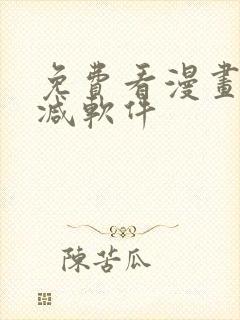 免費看漫畫
減軟件
陳苦瓜